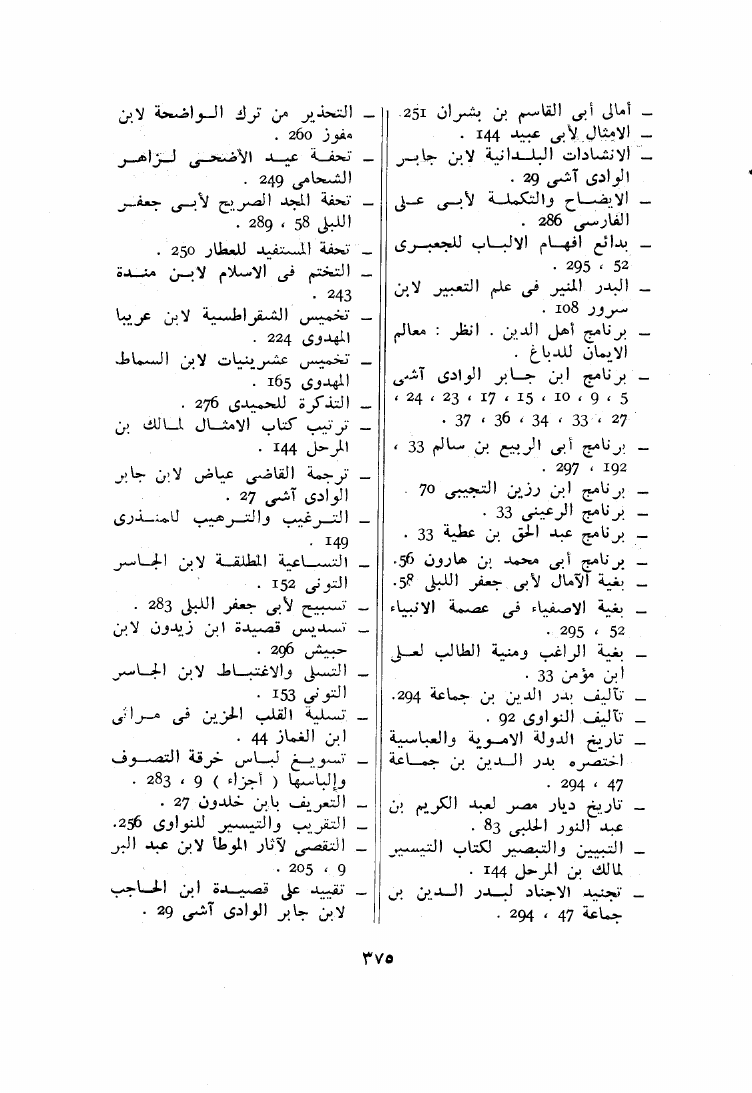 — أمالى أبى القاسم بن بشران 251
— الامثال لأبى عبيد 144 .
— الانشادات البلدانية لابن جابر
الوادى آشى 29 .
— الايضاح والتكملة لأبى على
الفارسى 286 .
— بدائع افهام الالباب للجعبرى
52 ، 295 .
— البدر المنير فى علم التعبير لابن
سرور 108 .
— برنامج أهل الدين . انظر : معالم
الايمان للدباغ .
— برنامج ابن جابر الوادى آشى
5 ، 9 ، 10 ، 15 ، 17 ، 23 ، 24 ،
27 ، 33 ، 34 ، 36 ، 37 .
— برنامج أبى الربيع بن سالم 33 ،
192 ، 297 .
— برنامج ابن رزين التجيبى 70 .
— برنامج الرعينى 33 .
— برنامج عبد الحق بن عطية 33 .
— برنامج أبى محمد بن هارون 56.
— بغية الآمال لأبى جعفر اللبلى 58.
— بغية الاصفياء فى عصمة الانبياء
52 ، 295 .
— بغية الراغب ومنية الطالب لعلى
ابن مؤمن 33 .
— تآليف بدر الدين بن جماعة 294.
— تآليف النواوى 92 .
— تاريخ الدولة الاموية والعباسية
اختصره بدر الدين بن جماعة
47 ، 294 .
— تاريخ ديار مصر لعبد الكريم بن
عبد النور الحلبى 83 .
— التبيين والتبصير لكتاب التيسير
لمالك بن المرحل 144 .
— تجنيد الاجناد لبدر الدين بن
جماعة 47 ، 294 .
— التحذير من ترك الواضحة لابن
مفوز 260 .
— تحفة عيد الأضحى لزاهر
الشحامى 249 .
— تحفة المجد الصريح لأبى جعفر
اللبلى 58 ، 289 .
— تحفة المستفيد للعطار 250 .
— التختم فى الاسلام لابن مندة
243 .
— تخميس الشقراطسية لابن عريبا
المهدوى 224 .
— تخميس عشرينيات لابن السماط
المهدوى 165 .
— التذكرة للحميدى 276 .
— ترتيب كتاب الامثال لمالك بن
المرحل 144 .
— ترجمة القاضى عياض لابن جابر
الوادى آشى 27 .
— الترغيب والترهيب للمنذرى
149 .
— التساعية المطلقة لابن الجاسر
التونى 152 .
— تسبيح لأبى جعفر اللبلى 283 .
— تسديس قصيدة ابن زيدون لابن
حبيش 296 .
— التسلى والاغتباط لابن الجاسر
التونى 153 .
— تسلية القلب الحزين فى مراثى
ابن الغماز 44 .
— تسويغ لباس خرقة التصوف
وإلباسها ( أجزاء ) 9 ، 283 .
— التعريف بابن خلدون 27 .
— التقريب والتيسير للنواوى 256.
— التقصى لآثار الموطأ لابن عبد البر
9 ، 205 .
— تقييد على قصيدة ابن الحاجب
لابن جابر الوادى آشى 29 .
٣٧٥